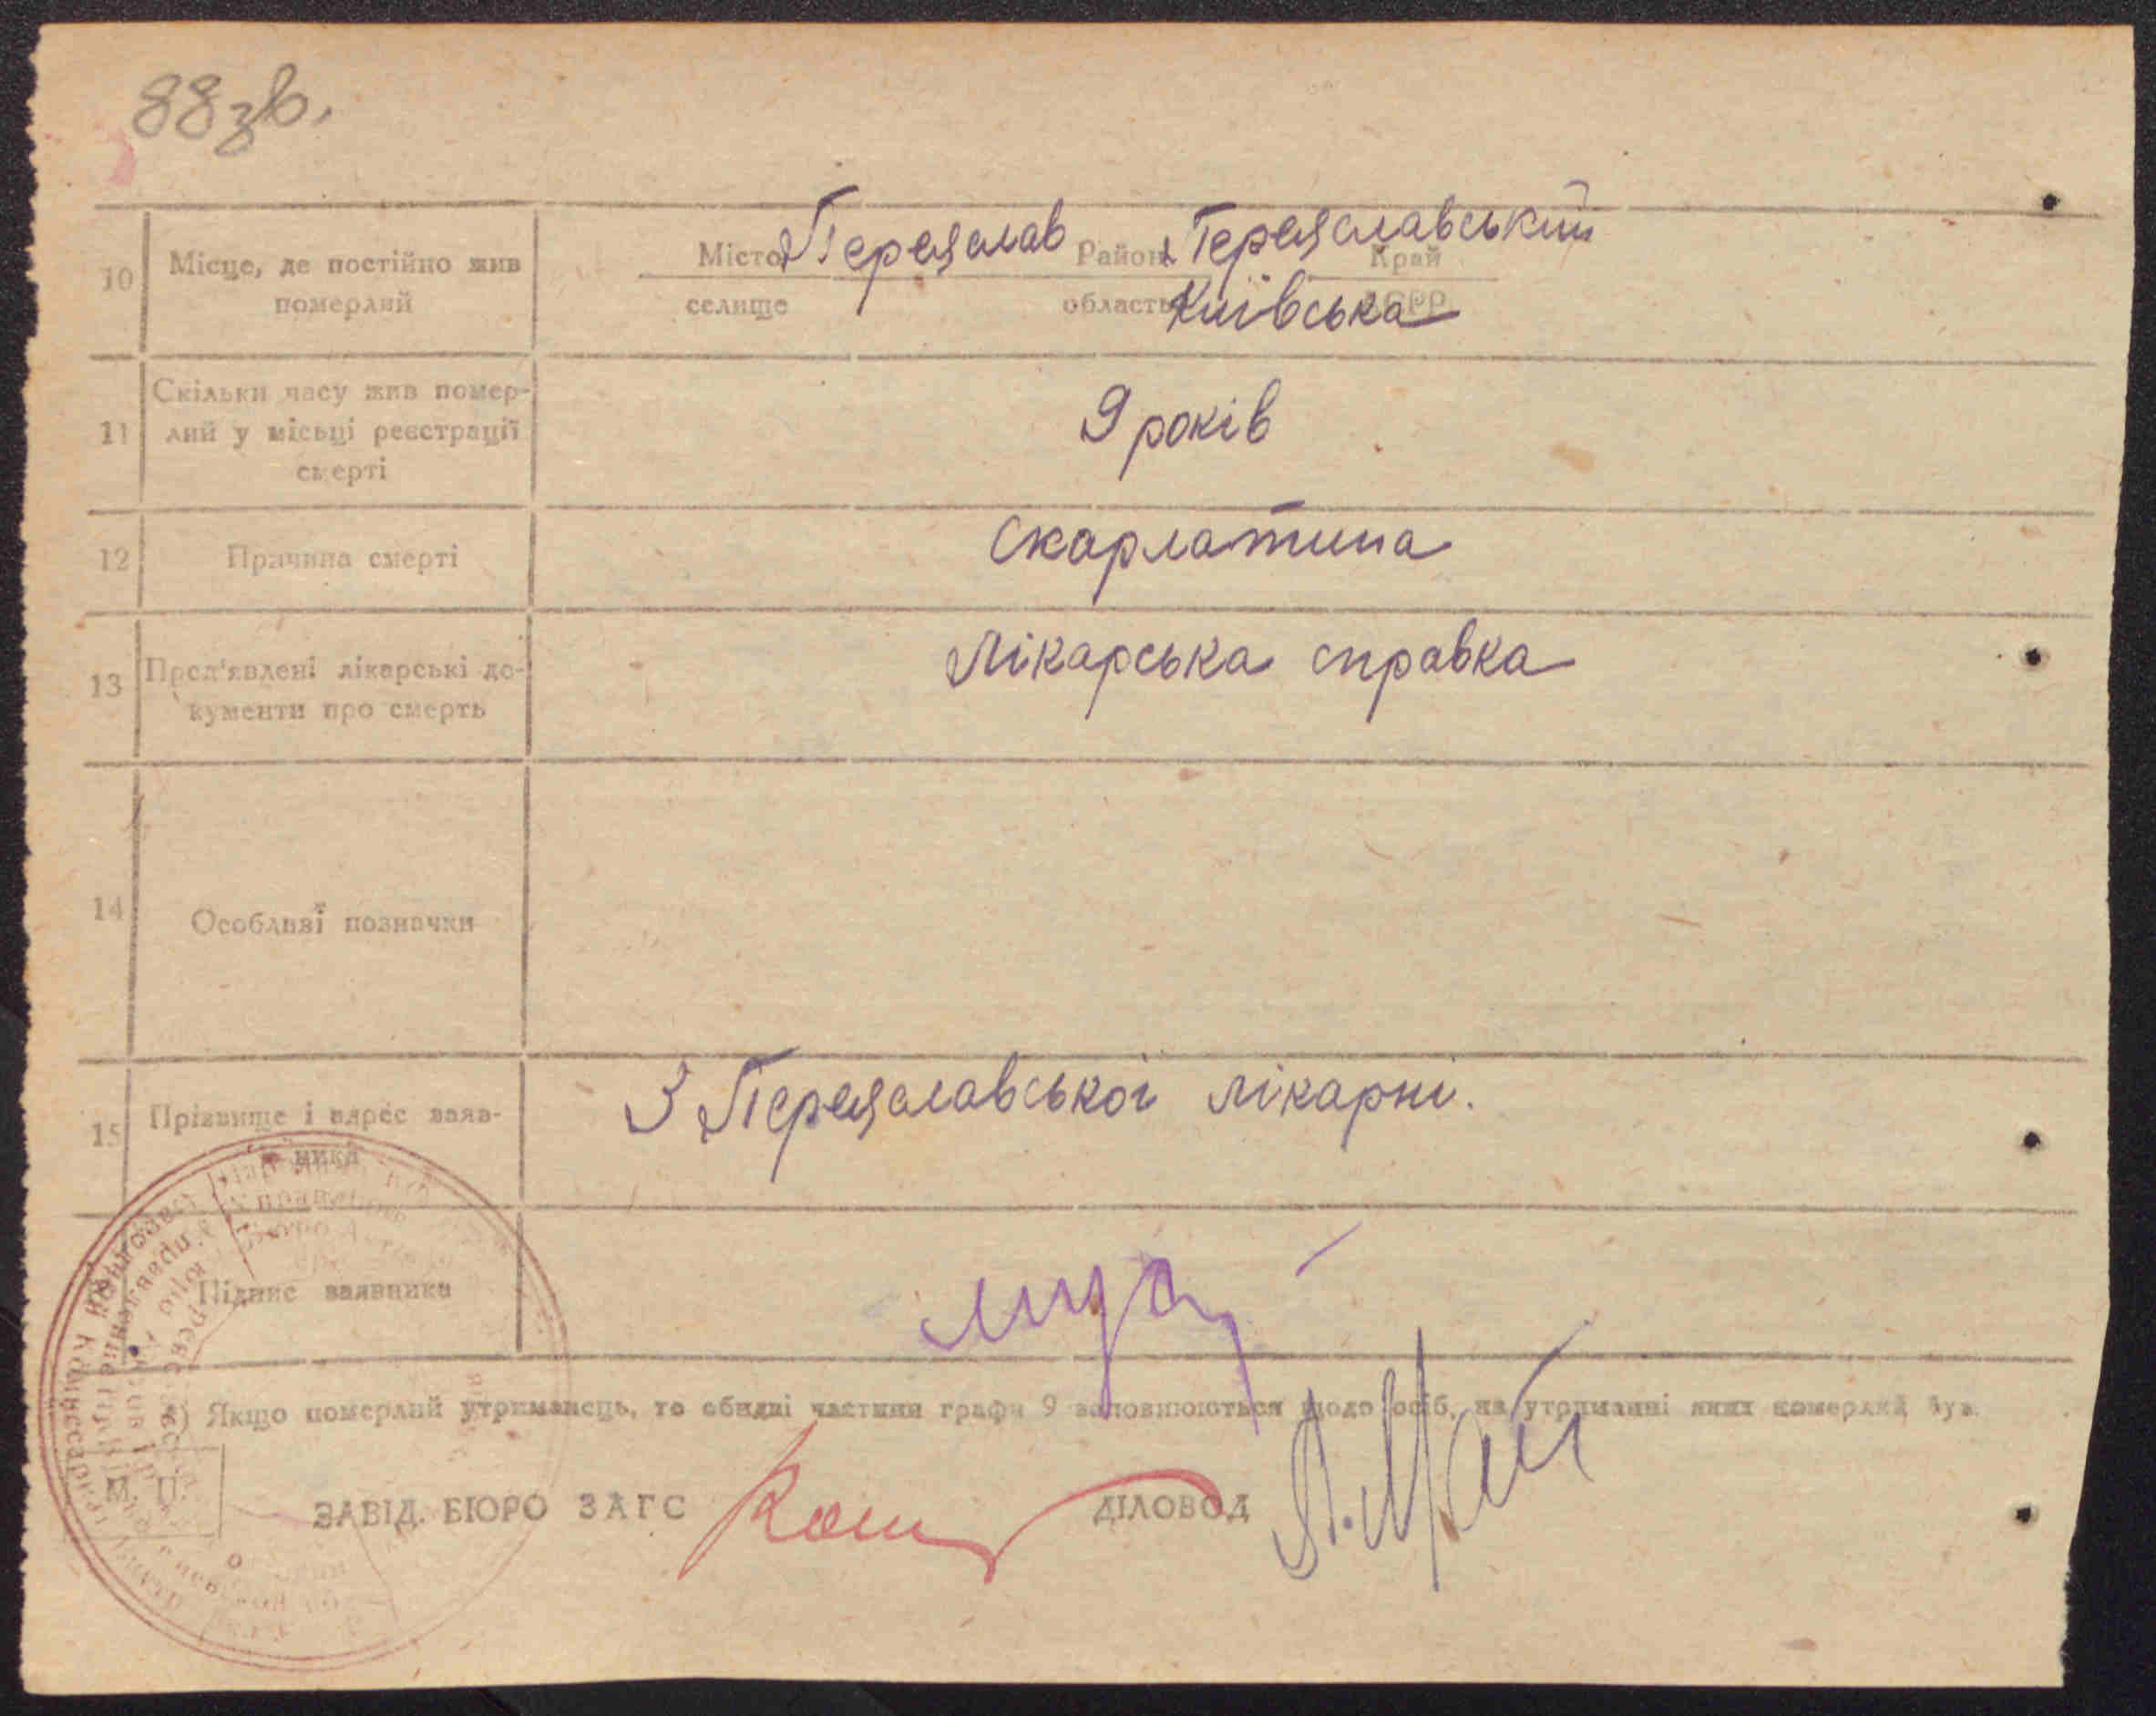 88 зв.
10 Місце, де постійно жив померлий
Місто Переяслав Район Переяславський Край
селище область Київська АСРР
11 Скільки часу жив помер-
лий у місьці реєстрації
смерті
9 років
12 Причина смерті
Скарлатина
13 Пред'явлені лікарські до-
кументи про смерть
Лікарська справка
14 Особливі позначки
15 Прізвище і адрес заяв-
ника
З Переяславської лікарні.
Підпис заявника
*) Якщо померлий утриманець, то обидві частини графи 9 заповнюються щодо осіб, на утриманні яких померлий був.
М. П.
ЗАВІД. БЮРО ЗАГС ДІЛОВОД